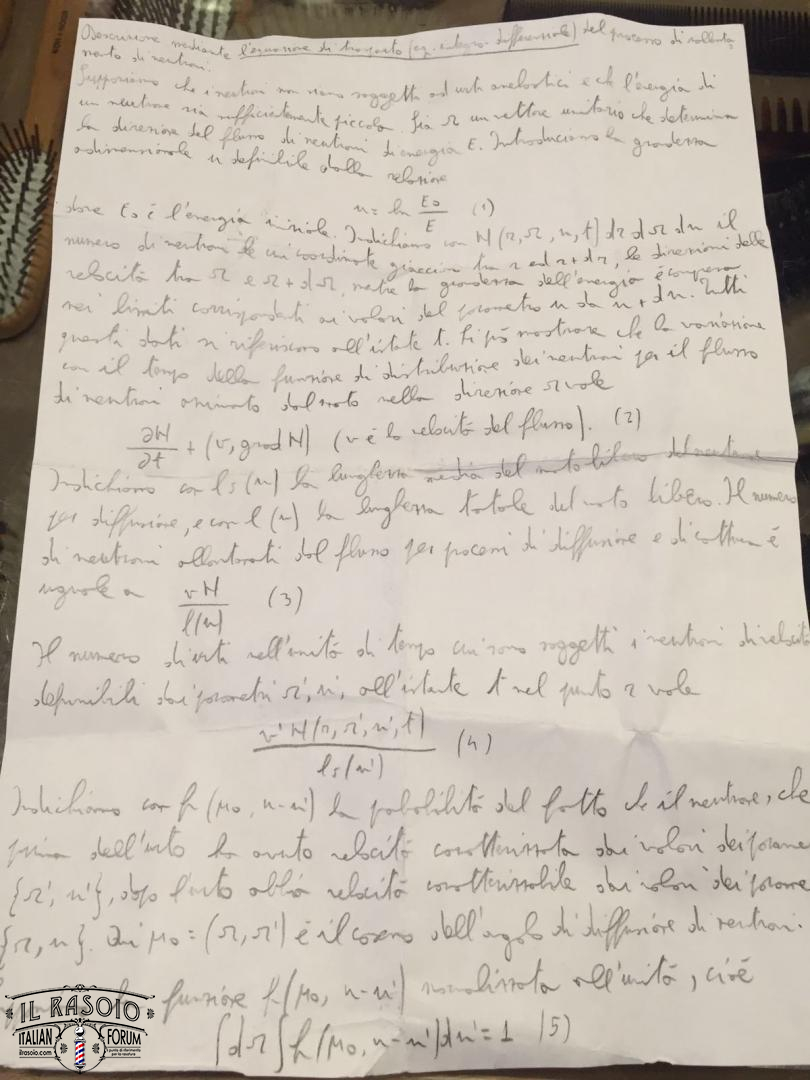 Descrizione mediante l'equazione di trasporto (eq. integro-differenziale) del processo di rallenta
mento di neutroni.
Supponiamo che i neutroni non siano soggetti ad urti anelastici e che l'energia di
un neutrone sia sufficientemente piccola. Sia Ω un vettore unitario che determina
la direzione del flusso di neutroni di energia E. Introduciamo la grandezza
adimensionale u definibile dalla relazione
u = ln E₀/E (1)
dove E₀ è l'energia iniziale. Indichiamo con N(r, Ω, u, t) dr dΩ du il
numero di neutroni le cui coordinate giaccion tra r ed r+dr, le direzioni delle
velocità tra Ω e Ω+dΩ, mentre la grandezza dell'energia è compresa
nei limiti corrispondenti ai valori del parametro u da u+du. Tutti
questi dati si riferiscono all'istante t. Si può mostrare che la variazione
con il tempo della funzione di distribuzione dei neutroni per il flusso
di neutroni animato dal moto nella direzione Ω vale
∂N/∂t + (v, grad N) (v è la velocità del flusso). (2)
Indichiamo con ls(u) la lunghezza media del moto libero del neutrone
per diffusione, e con l(u) la lunghezza totale del moto libero. Il numero
di neutroni allontanati dal flusso per processi di diffusione e di cattura è
uguale a vN/l(u) (3)
Il numero di urti nell'unità di tempo cui sono soggetti i neutroni di velocità
definibili dai parametri Ω', u', all'istante t nel punto r vale
v'N(r, Ω', u', t)/ls(u') (4)
Indichiamo con f(μ₀, u-u') la probabilità del fatto che il neutrone, che
prima dell'urto ha avuto velocità caratterizzata dai valori dei parame
{Ω', u'}, dopo l'urto abbia velocità caratterizzabile dai valori dei parame
{Ω, u}. Qui μ₀ = (Ω, Ω') è il coseno dell'angolo di diffusione di neutroni.
funzione f(μ₀, u-u') normalizzata all'unità, cioè
∫dΩ∫f(μ₀, u-u')du' = 1 (5)
IL RASOIO
ITALIAN FORUM
ilrasoio.com
il punto di riferimento
per la rasatura